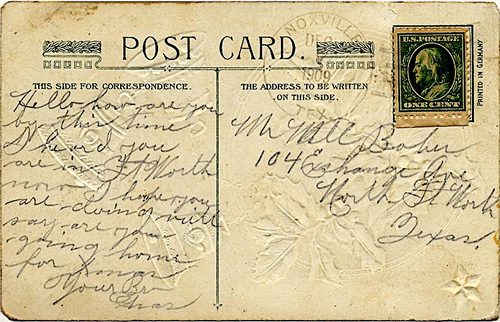 POST CARD.
THIS SIDE FOR CORRESPONDENCE.
Hello how are you
by this time
I heard you
are in Ft Worth
now I hope you
are doing well
say are you
going home
for Xmas
Your Bro
Chas
THE ADDRESS TO BE WRITTEN
ON THIS SIDE.
Mr Will Baker
104 Exchange Ave
North Ft Worth
Texas.
KNOXVILLE
DEC
1909
TEX
U.S. POSTAGE
ONE CENT
PRINTED IN GERMANY